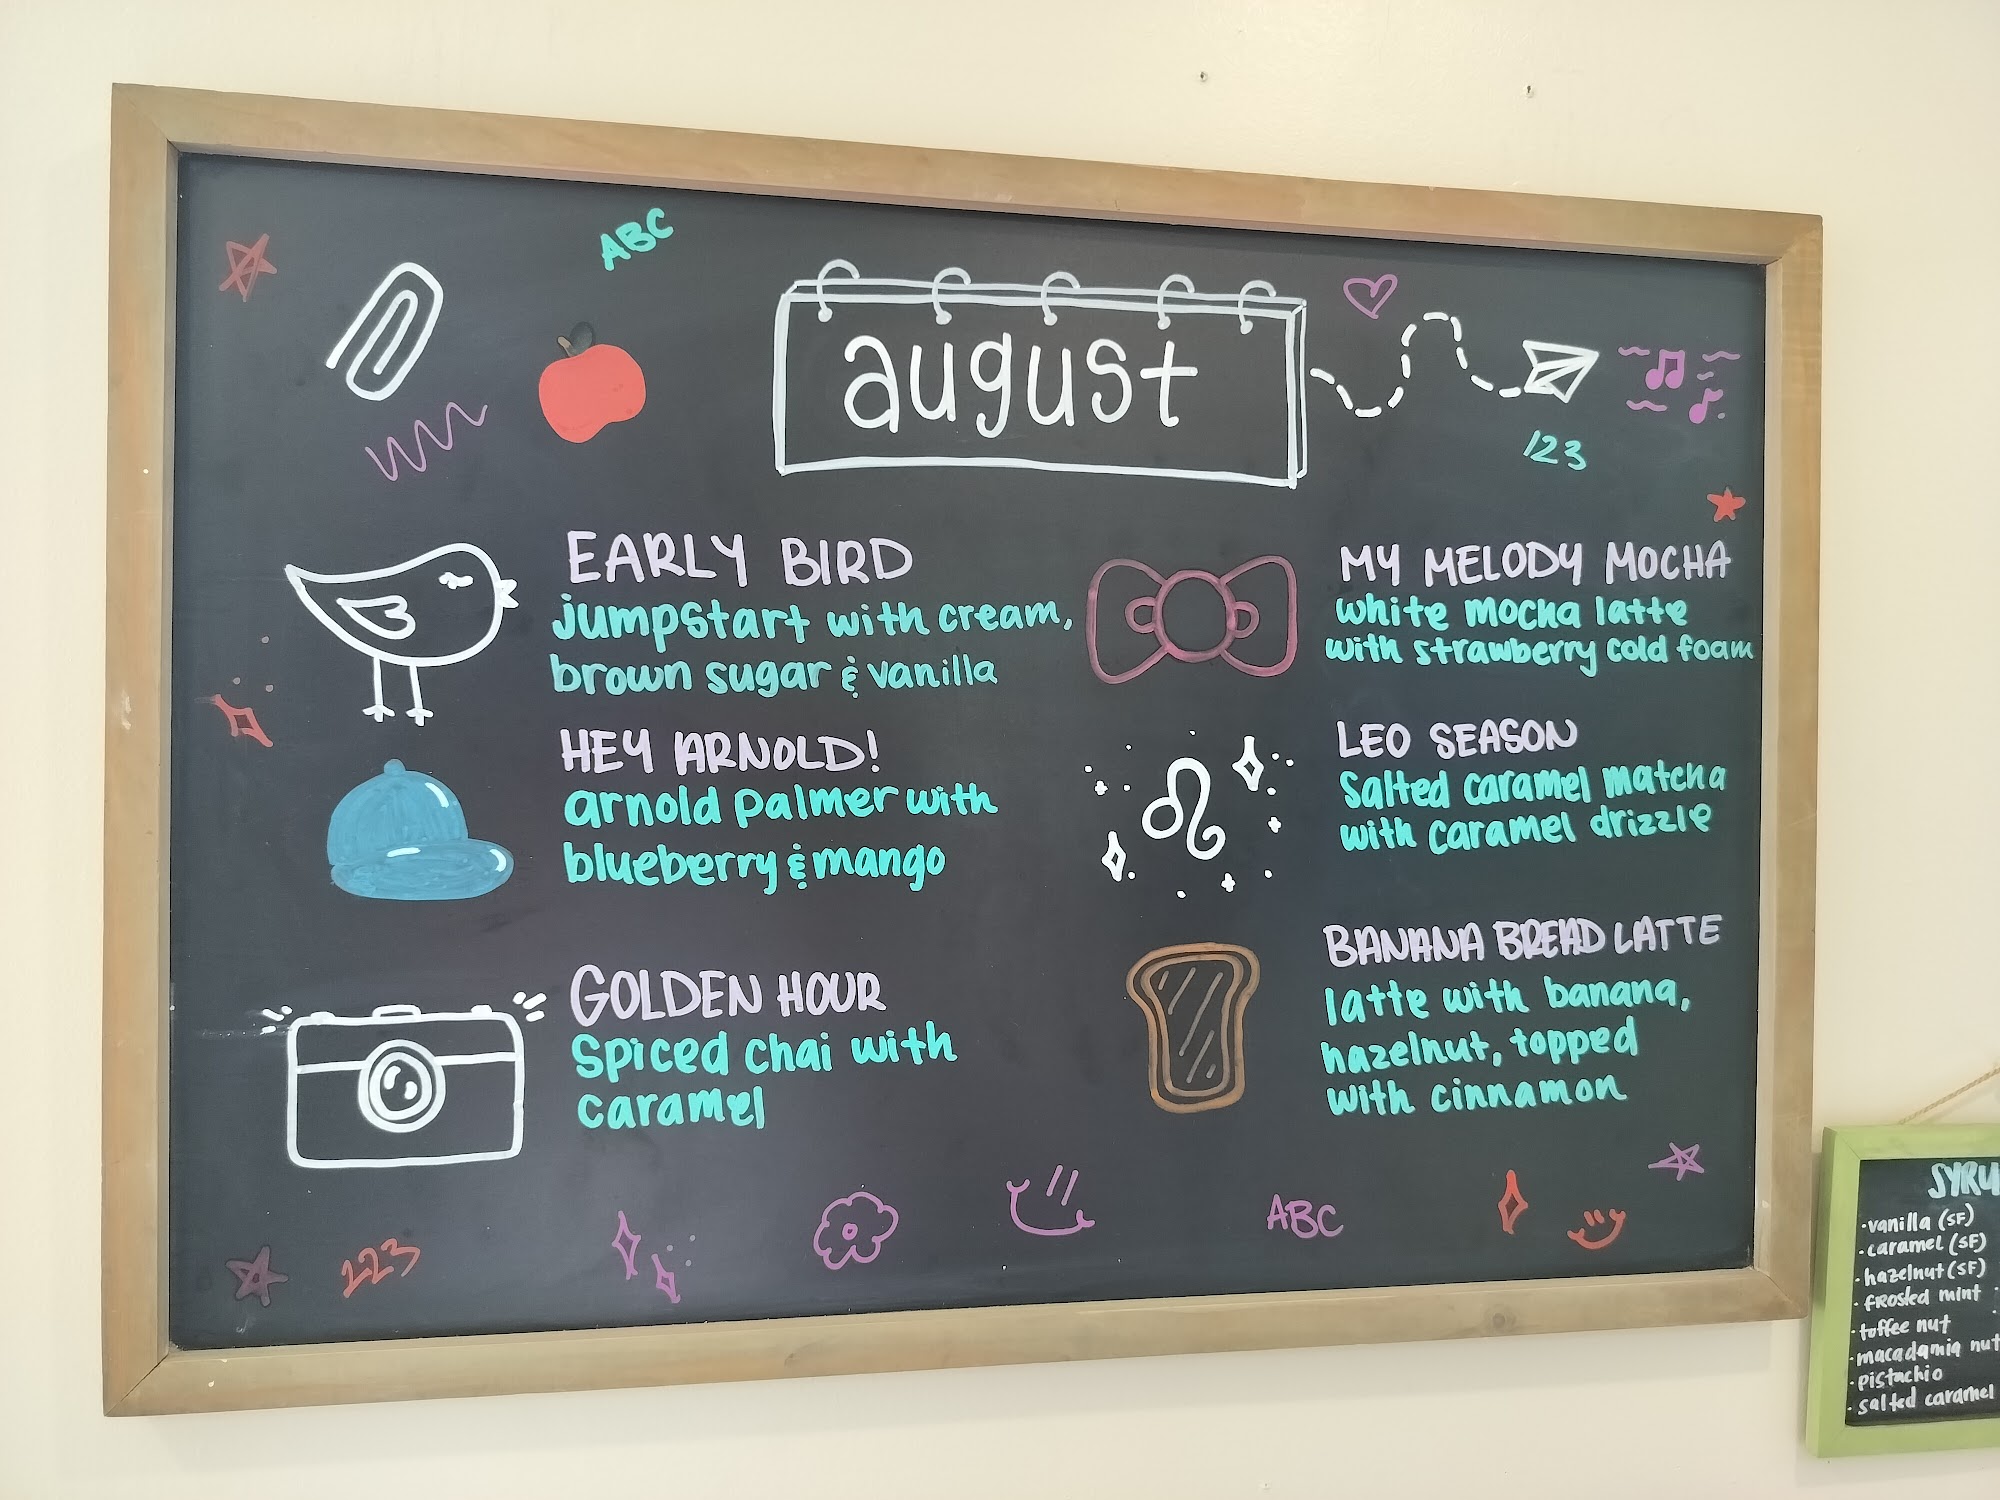 ABC
august
123
EARLY BIRD
jumpstart with cream,
brown sugar & vanilla
HEY ARNOLD!
arnold palmer with
blueberry & mango
GOLDEN HOUR
spiced chai with
caramel
MY MELODY MOCHA
white mocha latte
with strawberry cold foam
LEO SEASON
salted caramel matcha
with caramel drizzle
BANANA BREAD LATTE
latte with banana,
hazelnut, topped
with cinnamon
123
ABC
SYRU
·vanilla (SF)
·caramel (SF)
·hazelnut (SF)
·frosted mint
·toffee nut
·macadamia nut
·pistachio
·salted caramel